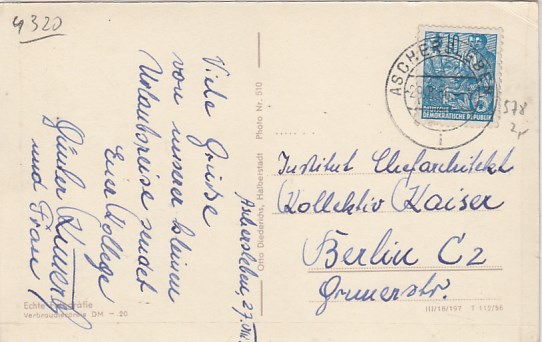 4320
Viele Grüße
von unserer kleinen
Urlaubsreise sendet
Euer Kollege
Günter
und Frau
Aschersleben, 27.
Echte Fotografie
Verbraucherpreis DM -.20
Otto Diederichs, Halberstadt Photo Nr. 510
ASCHERSLEBEN
10
DEUTSCHE
DEMOKRATISCHE REPUBLIK
578
Institut Chefarchitekt
Kollektiv Kaiser
Berlin C2
III/18/197 T 112/56